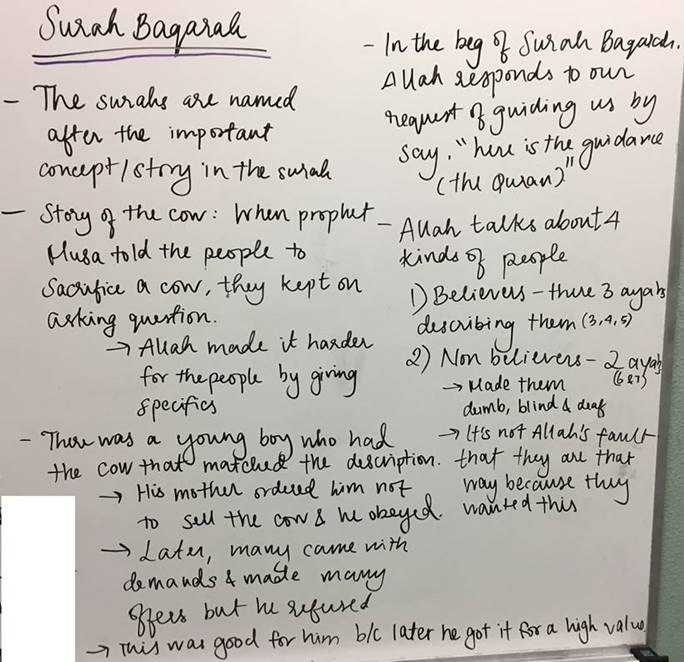 Surah Baqarah
- The surahs are named
after the important
concept/story in the surah
- Story of the cow: When prophet
Musa told the people to
sacrifice a cow, they kept on
asking question.
→ Allah made it harder
for the people by giving
specifics
- There was a young boy who had
the cow that matched the description.
→ His mother ordered him not
to sell the cow & he obeyed.
→ Later, many came with
demands & made many
offers but he refused
→ This was good for him b/c later he got it for a high value.
- In the beg of Surah Baqarah,
Allah responds to our
request of guiding us by
say, "here is the guidance
(the Quran)"
- Allah talks about 4
kinds of people
1) Believers - there 3 ayahs
describing them (3,4,5)
2) Non believers - 2 ayahs
(6 & 7)
→ Made them
dumb, blind & deaf
→ It's not Allah's fault
that they are that
way because they
wanted this